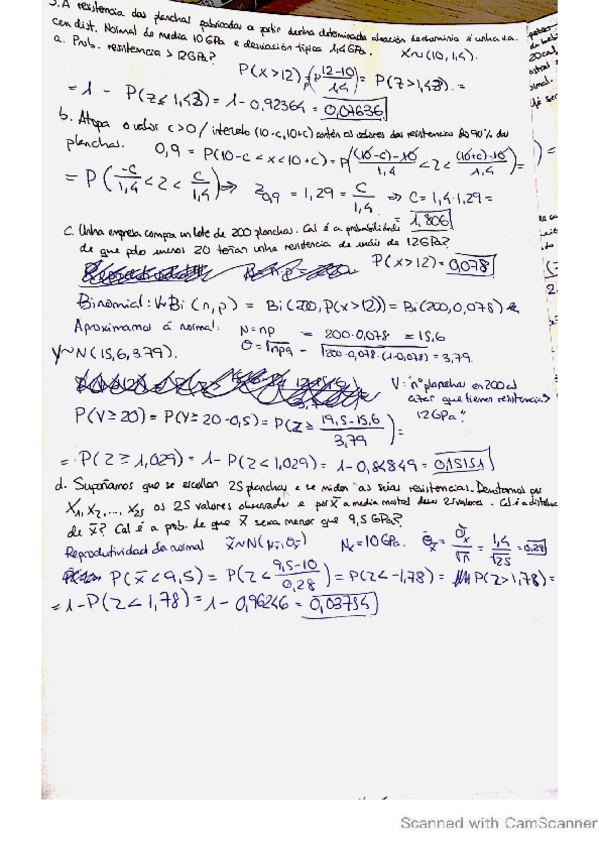 3. A resistencia das planchas fabricadas a partir dunha determinada aleación de aluminio é unha v.a.
con dist. Normal de media 10 GPa e desviación típica 1,4 GPa. X~N(10,1,4).
a. Prob. resistencia > 12 GPa?
P(X>12) = P( 12-10 / 1,4 ) = P(Z>1,43) =
= 1 - P(Z≤1,43) = 1 - 0,92364 = 0,07636
b. Atopa o valor c>0 / intervalo (10-c,10+c) contén os valores das resistencias do 90% das
planchas.
0,9 = P(10-c < x < 10+c) = P( (10-c)-10 / 1,4 < Z < (10+c)-10 / 1,4 ) =
= P( -c / 1,4 < Z < c / 1,4 ) ⇒ Z0,9 = 1,29 = c / 1,4 ⇒ c = 1,4·1,29 =
= 1,806
c. Unha empresa compra un lote de 200 planchas. Cal é a probabilidade
de que polo menos 20 teñan unha resistencia de máis de 12 GPa?
P(X>12) = 0,078
Binomial: V~Bi (n,p) = Bi(200,P(x>12)) = Bi(200,0,078)
Aproximamos á normal: N = np = 200·0,078 = 15,6
Y~N(15,6,3,79). σ = √npq = √200·0,078·(1-0,078) = 3,79
V: "nº planchas en 200 al
azar que tienen resistencia >
12 GPa"
P(V≥20) = P(Y≥20-0,5) = P(Z≥ 19,5-15,6 / 3,79 ) =
= P(Z≥1,029) = 1 - P(Z<1,029) = 1 - 0,84849 = 0,15151
d. Supoñamos que se escollen 25 planchas e se miden as súas resistencias. Denotamos por
X1, X2, ..., X25 os 25 valores observados e por x̄ a media mostral deses 25 valores. Cal é a distribuc
de x̄? Cal é a prob. de que x̄ sexa menor que 9,5 GPa?
Reprodutividad da normal x̄~N(μx̄,σx̄) Nx = 10 GPa. σx̄ = σx / √n = 1,4 / √25 = 0,28
P(x̄<9,5) = P(Z< 9,5-10 / 0,28 ) = P(Z<-1,78) = P(Z>1,78) =
= 1 - P(Z<1,78) = 1 - 0,96246 = 0,03754
Scanned with CamScanner